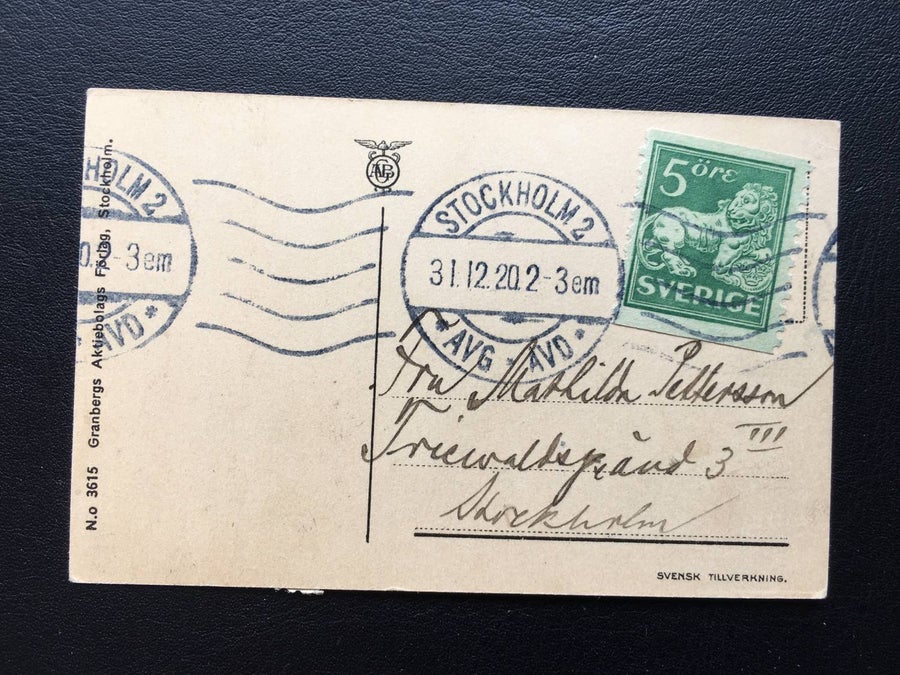 HOLM 2
0.2-3em
AVD *
N.o 3615 Granbergs Aktiebolags Förlag, Stockholm.
STOCKHOLM 2
31.12.20.2-3em
* AVG - AVD *
5 öre
SVERIGE
Fru Mathilda Pettersson
Triewaldsgränd 3 III
Stockholm
SVENSK TILLVERKNING.